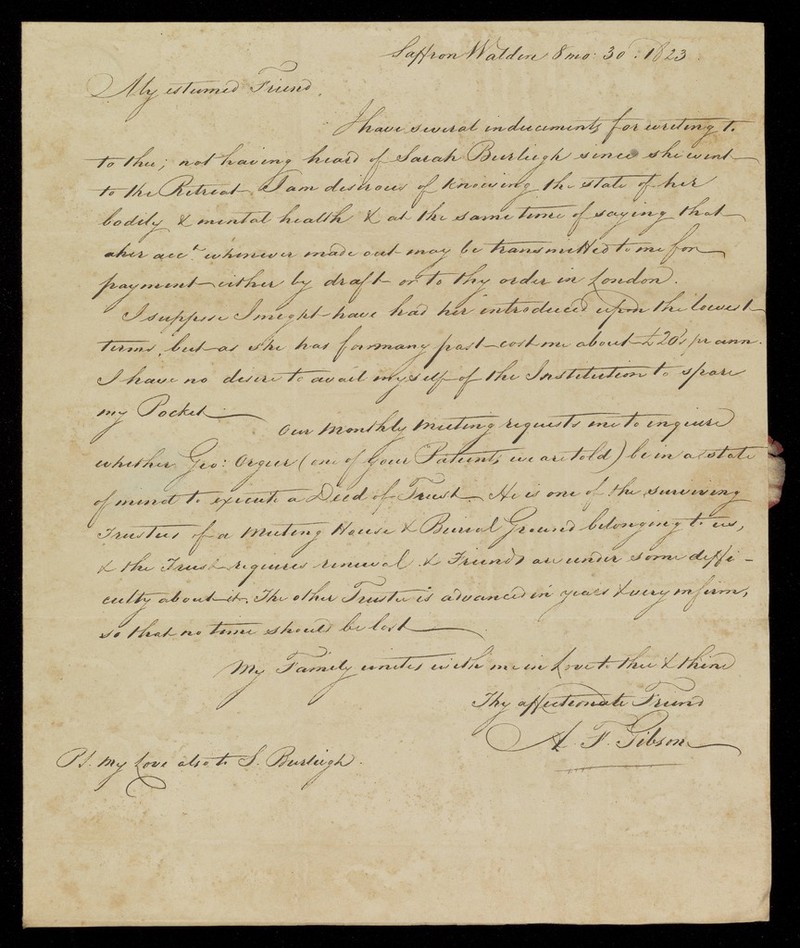 Saffron Walden 8 mo: 30: 1823
My esteemed Friend,
I have several inducements for writing to
to thee; not having heard of Sarah Burleigh since she went
to the Retreat I am desirous of knowing the state of her
bodily & mental health & at the same time of saying that
her acct. whenever made out may be transmitted to me for
payment either by draft or to thy order in London.
I suppose I might have had her introduced upon the lowest
terms, but as she has for many past cost me about £20s pr ann.
I have no desire to avail myself of the Institution to spare
my Pocket
Our Monthly Meeting requests me to inquire
whether Geo: (one of your Patients we are told) be in a state
of mind to execute a Deed of Trust He is one of the surviving
Trustees of a Meeting House & Burial Ground belonging to us,
& the Trust requires renewal & Friends are under some diffi-
culty about it. The other Trustee is advanced in years & very infirm,
so that no time should be lost
My Family unites with me in Love to thee & thine
Thy affectionate Friend
A. F. Gibson
PS. My Love also to S. Burleigh.